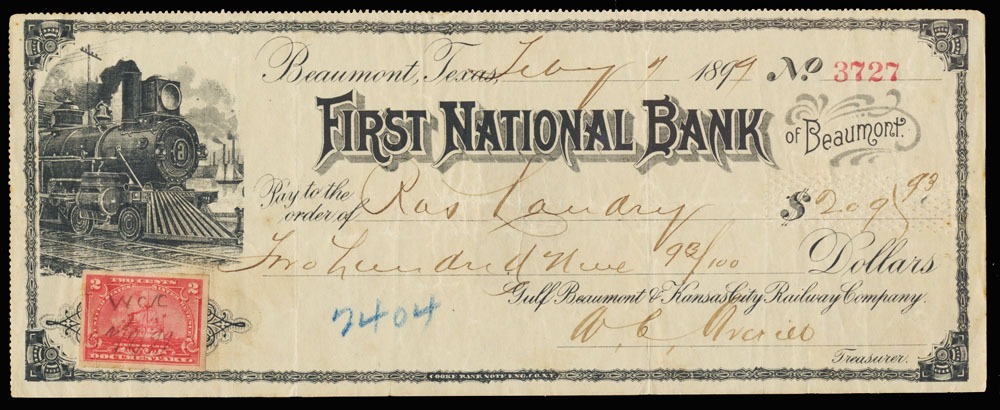 Beaumont, Texas, Feby 7 1899 No. 3727
FIRST NATIONAL BANK of Beaumont.
Pay to the order of Ras Landry $209 93
Two hundred Nine 93/100 Dollars
Gulf Beaumont & Kansas City Railway Company.
W. C. Averill
Treasurer.
2 TWO CENTS 2
DOCUMENTARY
7404
COOKE BANK NOTE ENG. CO. N.Y.